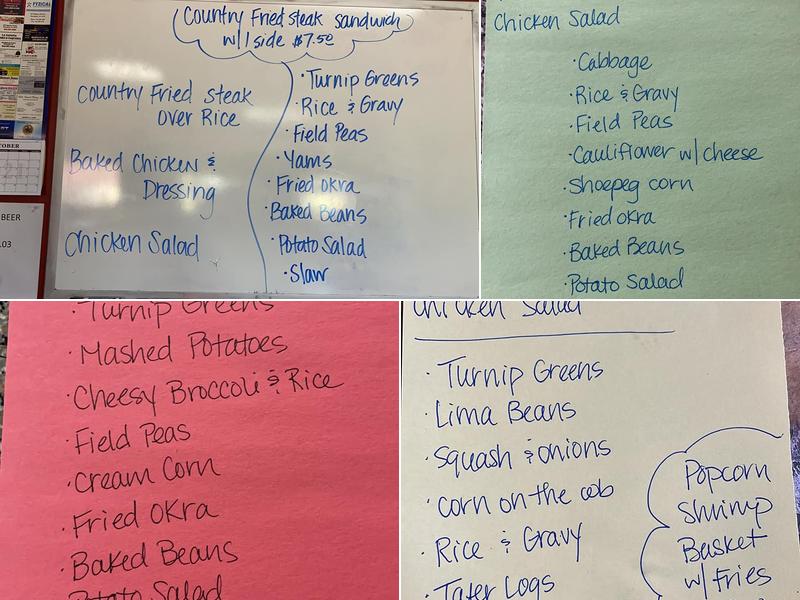 Country Fried steak sandwich
w/1 side $7.50
Country Fried steak
over Rice
Baked Chicken &
Dressing
Chicken Salad
· Turnip Greens
· Rice & Gravy
· Field Peas
· Yams
· Fried okra
· Baked Beans
· Potato Salad
· Slaw
BEER
.03
TOBER
Chicken Salad
· Cabbage
· Rice & Gravy
· Field Peas
· Cauliflower w/ cheese
· Shoepeg corn
· Fried okra
· Baked Beans
· Potato Salad
· Turnip Greens
· Mashed Potatoes
· Cheesy Broccoli & Rice
· Field Peas
· Cream Corn
· Fried Okra
· Baked Beans
Potato Salad
Chicken Salad
· Turnip Greens
· Lima Beans
· Squash & onions
· corn on the cob
· Rice & Gravy
· Tater Logs
Popcorn
Shrimp
Basket
w/ Fries